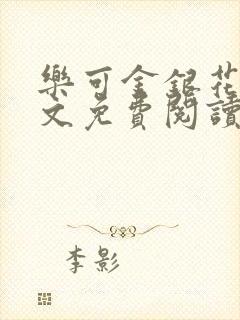 樂可金銀花
文免費閱讀
李影